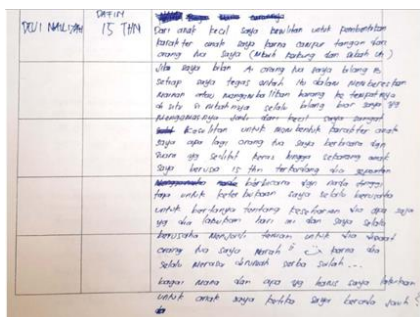 DEVI NAULIDAH
DAFIN
15 THN
Dari anak kecil saya kesulitan untuk pembentukan
karakter anak saya karna campur tangan dari
orang tua saya (Mbah kakung dan mbah uti)
Jika saya bilang A orang tua saya bilang B
setiap saya tegas untuk itu dalam membereskan
mainan atau mengembalikan barang ke tempatnya
di situ si mbahnya selalu bilang biar saya yg
mengemasnya Jadi dari kecil saya sangat
kesulitan untuk membentuk karakter anak
saya apa lagi orang tua saya berbicara dan
suara yg sedikit keras hingga sekarang anak
saya berusia 15 thn terkadang dia sepontan
berbicara dan nada tinggi
tapi untuk keterbukaan saya selalu berusaha
untuk bertanya tentang keseharian dia apa saja
yg dia lakukan hari ini dan saya selalu
berusaha menjadi teman untuk dia disaat
orang tua saya marah² karna dia
selalu merasa dirumah serba salah...
bagai mana dan apa yg harus saya lakukan
untuk anak saya ketika saya berada jauh?